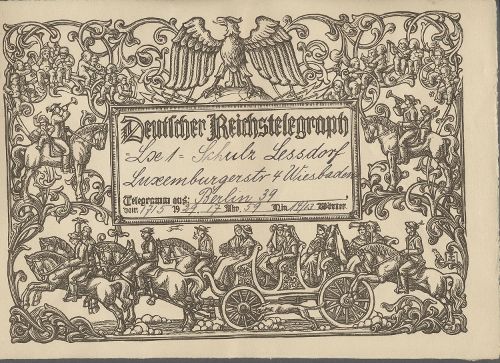 Deutscher Reichstelegraph
Lx 1 = Schulz Lessdorf
Luxemburgerstr 4 Wiesbaden
Telegramm aus: Berlin 39
vom 17/5 19 29, 17 Uhr 59 Min. Wörter